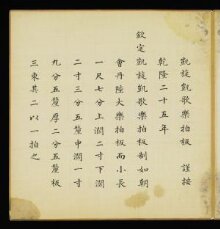 凱旋凱歌樂拍板　謹按
乾隆二十五年
欽定凱旋凱歌樂拍板制如朝
會丹陛大樂拍板而小長
一尺七分上濶二寸下濶
九分五釐中濶一寸
九分五釐厚二分五釐板
三束其二以一拍之